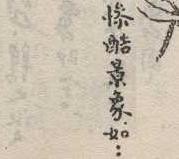 慘酷景象如：